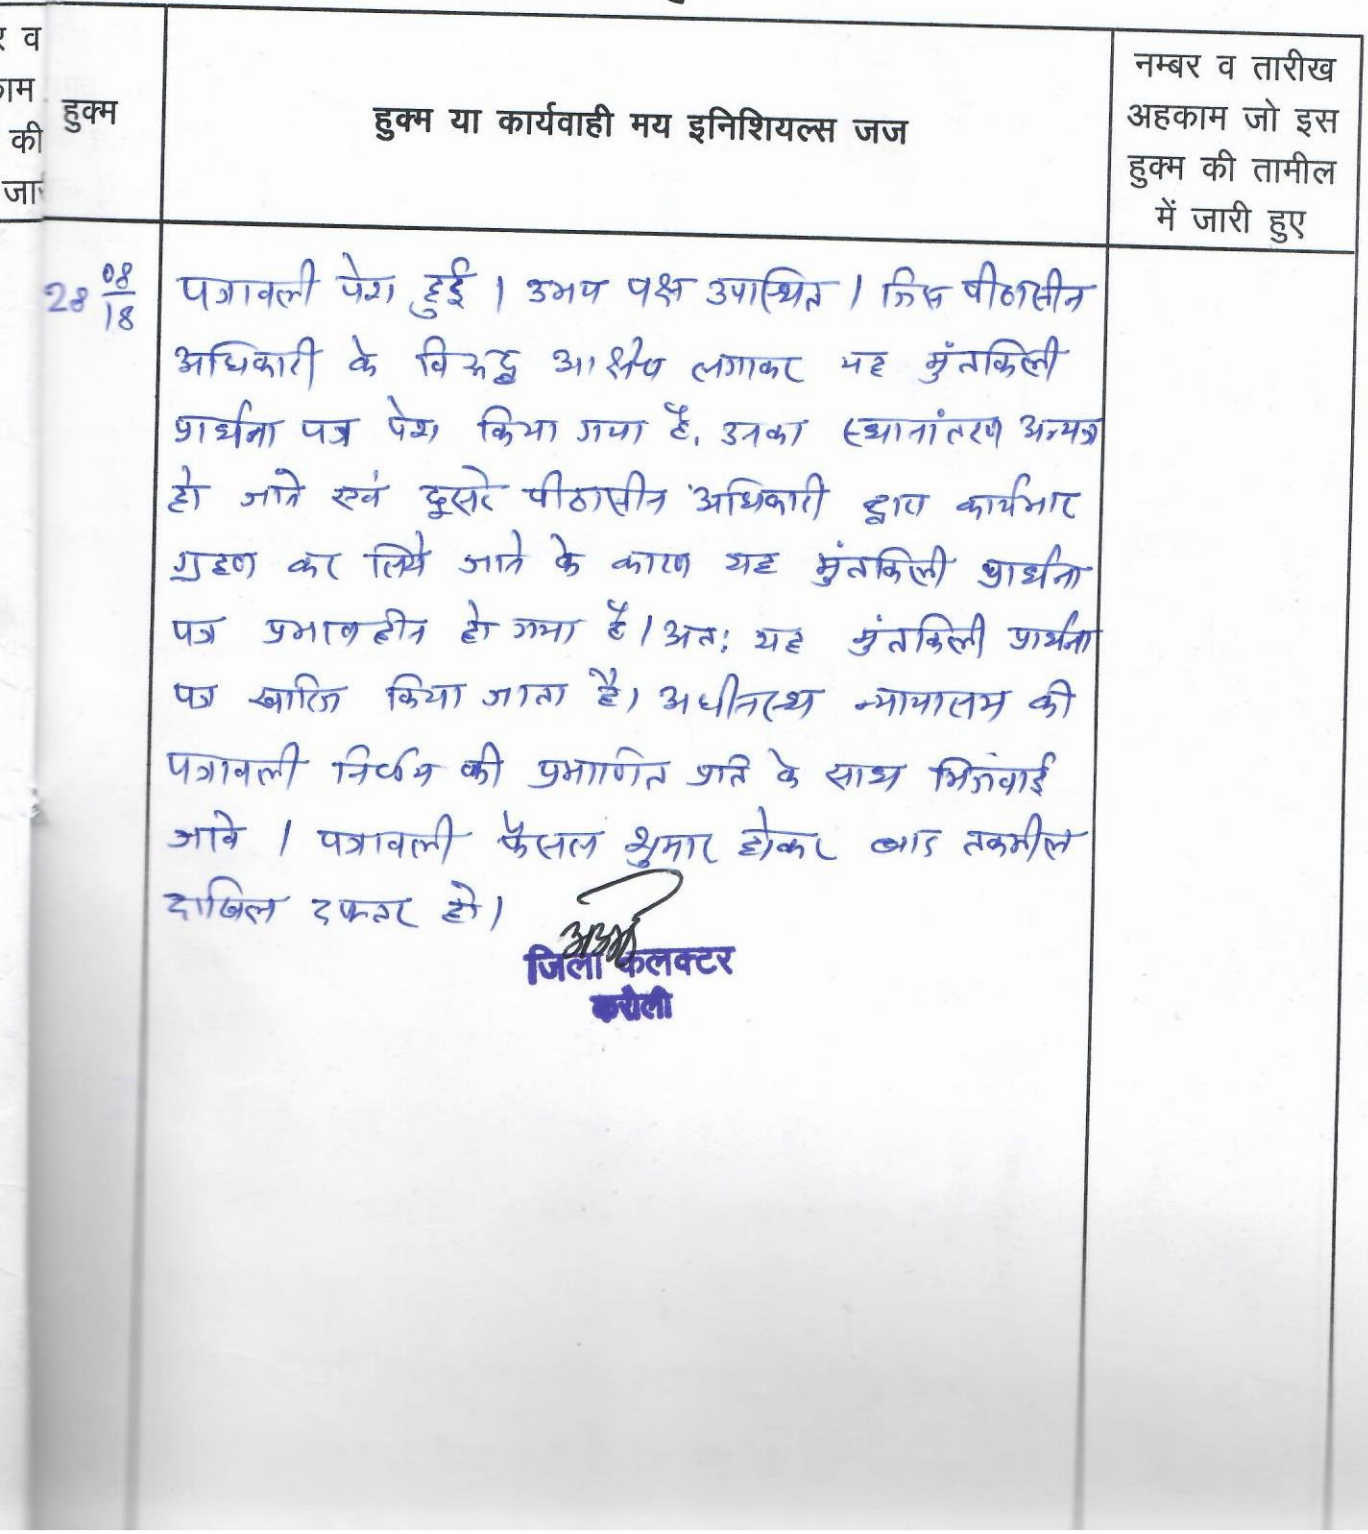 र व
हुक्म
की
हुक्म या कार्यवाही मय इनिशियल्स जज
नम्बर व तारीख
अहकाम जो इस
हुक्म की तामील
में जारी हुए
28 08/18
पत्रावली पेश हुई । उभय पक्ष उपास्थित । जिस पीठासीन
अधिकारी के विरूद्ध आक्षेप लगाकर यह मुंतकिली
प्रार्थना पत्र पेश किया गया है, उनका स्थानांतरण अन्यत्र
हो जाने एवं दूसरे पीठासीन अधिकारी द्वारा कार्यभार
ग्रहण कर लिये जाने के कारण यह मुंतकिली प्रार्थना
पत्र प्रभावहीन हो गया है । अतः यह मुंतकिली प्रार्थना
पत्र खारिज किया जाता है। अधीनस्थ न्यायालय की
पत्रावली निर्णय की प्रमाणित प्रति के साथ भिजवाई
जावे । पत्रावली फैसल शुमार होकर बाद तकमील
दाखिल दफ्तर हो।
जिला कलक्टर
करौली